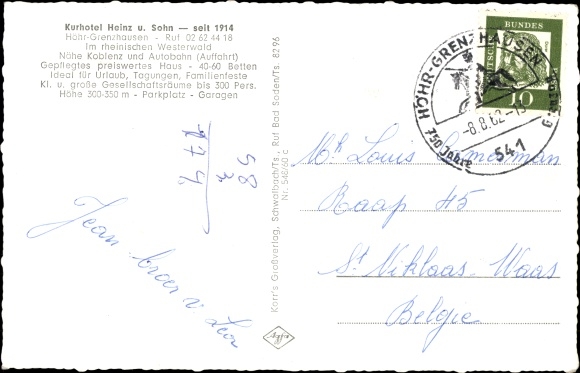 Kurhotel Heinz u. Sohn — seit 1914
Höhr-Grenzhausen - Ruf 02 62 44 18
Im rheinischen Westerwald
Nähe Koblenz und Autobahn (Auffahrt)
Gepflegtes preiswertes Haus - 40-60 Betten
Ideal für Urlaub, Tagungen, Familienfeste
Kl. u. große Gesellschaftsräume bis 300 Pers.
Höhe 300-350 m - Parkplatz - Garagen
58
3
174
Jean broer v Leon
Korr's Großverlag, Schwalbach/Ts., Ruf Bad Soden/Ts. 8296
Nr. 548/60 c
Agfa
DEUTSCHE BUNDESPOST
10
HÖHR-GRENZHAUSEN
-8.8.62-15
750 Jahre
541
Mr Louis
Raap 45
St Niklaas-Waas
Belgie